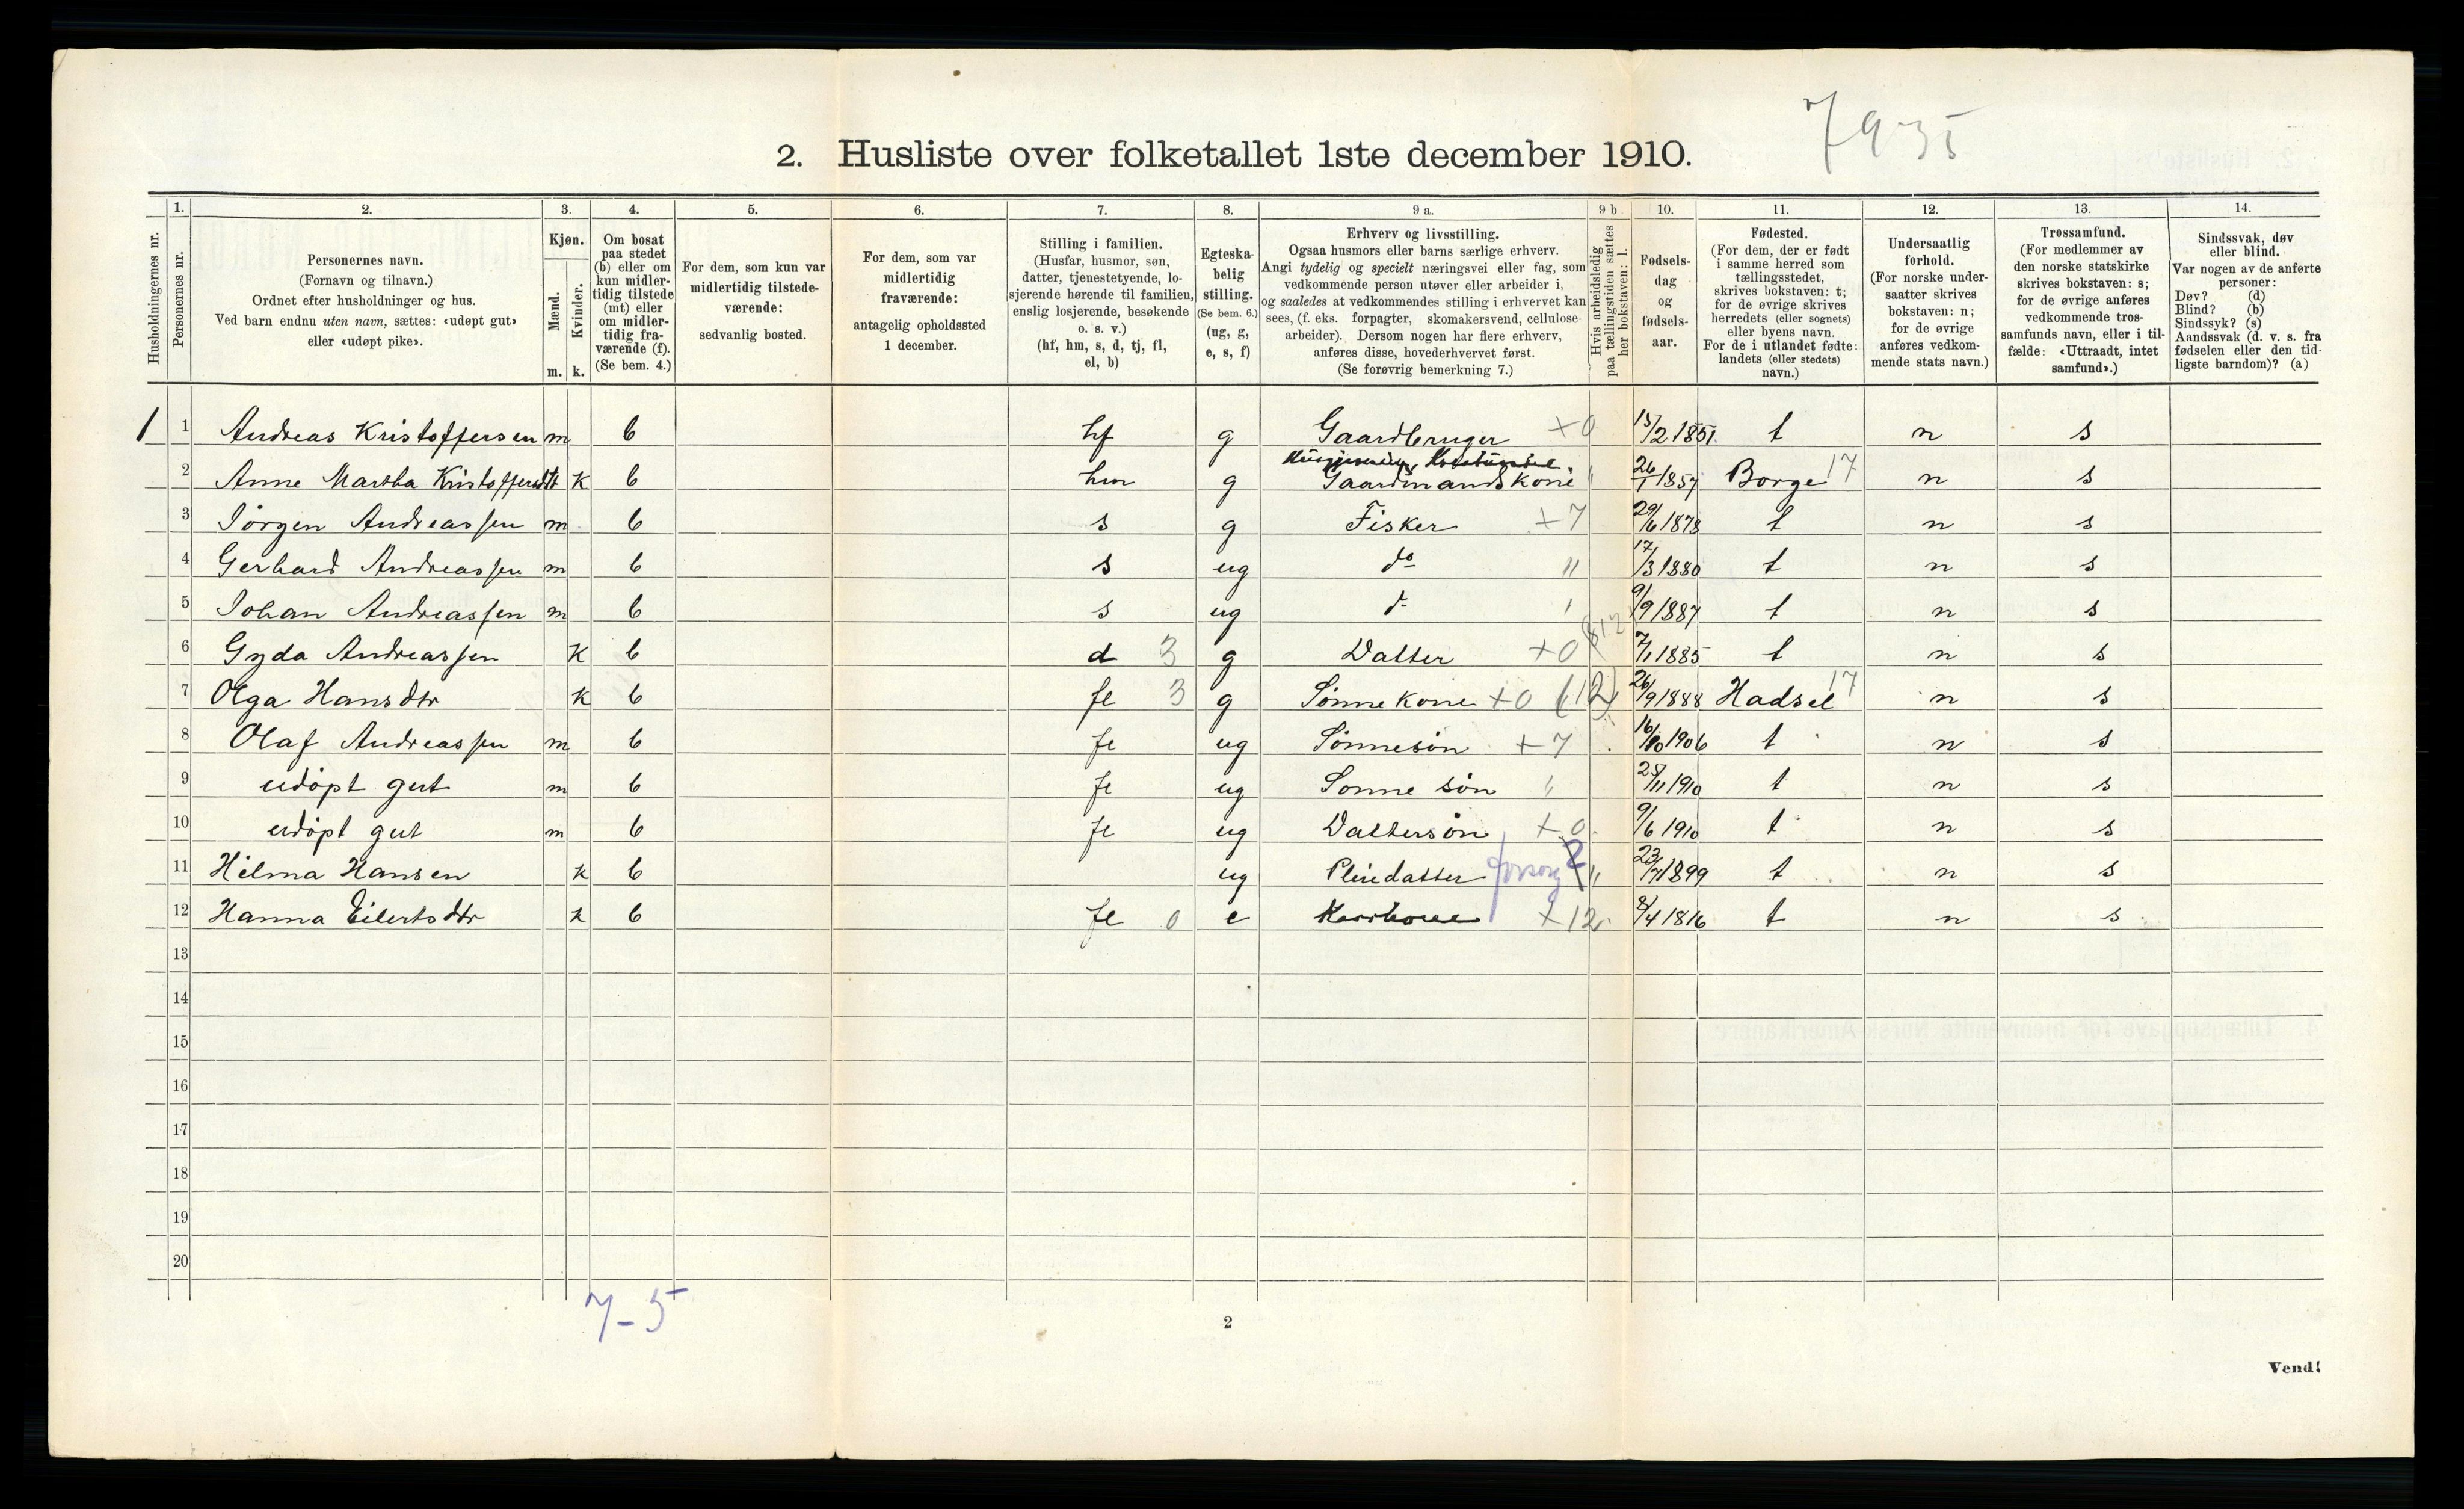 7935
2. Husliste over folketallet 1ste december 1910.
Husholdningernes nr.
1. 2. 3. 4. 5. 6. 7. 8. 9 a. 9 b. 10. 11. 12. 13. 14.
Personernes nr.
Personernes navn.
(Fornavn og tilnavn.)
Ordnet efter husholdninger og hus.
Ved barn endnu uten navn, sættes: «udøpt gut»
eller «udøpt pike».
Kjøn.
Mænd.
Kvinder.
m. k.
Om bosat
paa stedet
(b) eller om
kun midler-
tidig tilstede
(mt) eller
om midler-
tidig fra-
værende (f).
(Se bem. 4.)
For dem, som kun var
midlertidig tilstede-
værende:
sedvanlig bosted.
For dem, som var
midlertidig
fraværende:
antagelig opholdssted
1 december.
Stilling i familien.
(Husfar, husmor, søn,
datter, tjenestetyende, lo-
sjerende hørende til familien,
enslig losjerende, besøkende
o. s. v.)
(hf, hm, s, d, tj, fl,
el, b)
Egteska-
belig
stilling.
(Se bem. 6.)
(ug, g,
e, s, f)
Erhverv og livsstilling.
Ogsaa husmors eller barns særlige erhverv.
Angi tydelig og specielt næringsvei eller fag, som
vedkommende person utøver eller arbeider i,
og saaledes at vedkommendes stilling i erhvervet kan
sees, (f. eks. forpagter, skomakersvend, cellulose-
arbeider). Dersom nogen har flere erhverv,
anføres disse, hovederhvervet først.
(Se forøvrig bemerkning 7.)
Hvis arbeidsledig
paa tællingstiden sættes
her bokstaven: l.
Fødsels-
dag
og
fødsels-
aar.
Fødested.
(For dem, der er født
i samme herred som
tællingsstedet,
skrives bokstaven: t;
for de øvrige skrives
herredets (eller sognets)
eller byens navn.
For de i utlandet fødte:
landets (eller stedets)
navn.)
Undersaatlig
forhold.
(For norske under-
saatter skrives
bokstaven: n;
for de øvrige
anføres vedkom-
mende stats navn.)
Trossamfund.
(For medlemmer av
den norske statskirke
skrives bokstaven: s;
for de øvrige anføres
vedkommende tros-
samfunds navn, eller i til-
fælde: «Uttraadt, intet
samfund».)
Sindssvak, døv
eller blind.
Var nogen av de anførte
personer:
Døv? (d)
Blind? (b)
Sindssyk? (s)
Aandssvak (d. v. s. fra
fødselen eller den tid-
ligste barndom)? (a)
1 1 Andreas Kristoffersen m b hf g Gaardbruger +0 15/2 1851 t n s
2 Anne Martha Kristoffersdtr k b hm g Gaardmands kone " 26/1 1857 Borge 17 n s
3 Jörgen Andreassen m b s g Fisker +7 29/6 1878 t n s
4 Gerhard Andreassen m b s ug do " 17/3 1880 t n s
5 Johan Andreassen m b s ug d- 9/9 1887 t n s
6 Gyda Andreassen k b d 3 g Datter +0 7/1 1885 t n s
7 Olga Hansdtr k b fl 3 g Sönnekone +0 (12) 26/9 1888 Hadsel 17 n s
8 Olaf Andreassen m b fl ug Sönnesön +7 16/10 1906 t n s
9 udöpt gut m b fl ug Sonne sön " 28/11 1910 t n s
10 udöpt gut m b fl ug Dattersön +0 9/6 1910 t n s
11 Hilma Hansen k b ug Pleiedatter forsørg 2 " 23/7 1899 t n s
12 Hanna Eilertsdtr k b fl 0 e Kaarkone +12 8/4 1816 t n s
13
14
15
16
17
18
19
20
7-5
2
Vend!